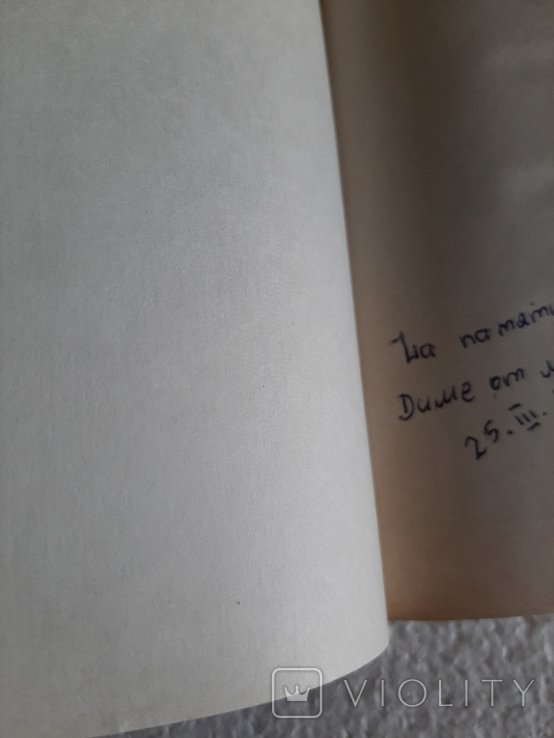 На память
Диме от
25.III.
VIOLITY